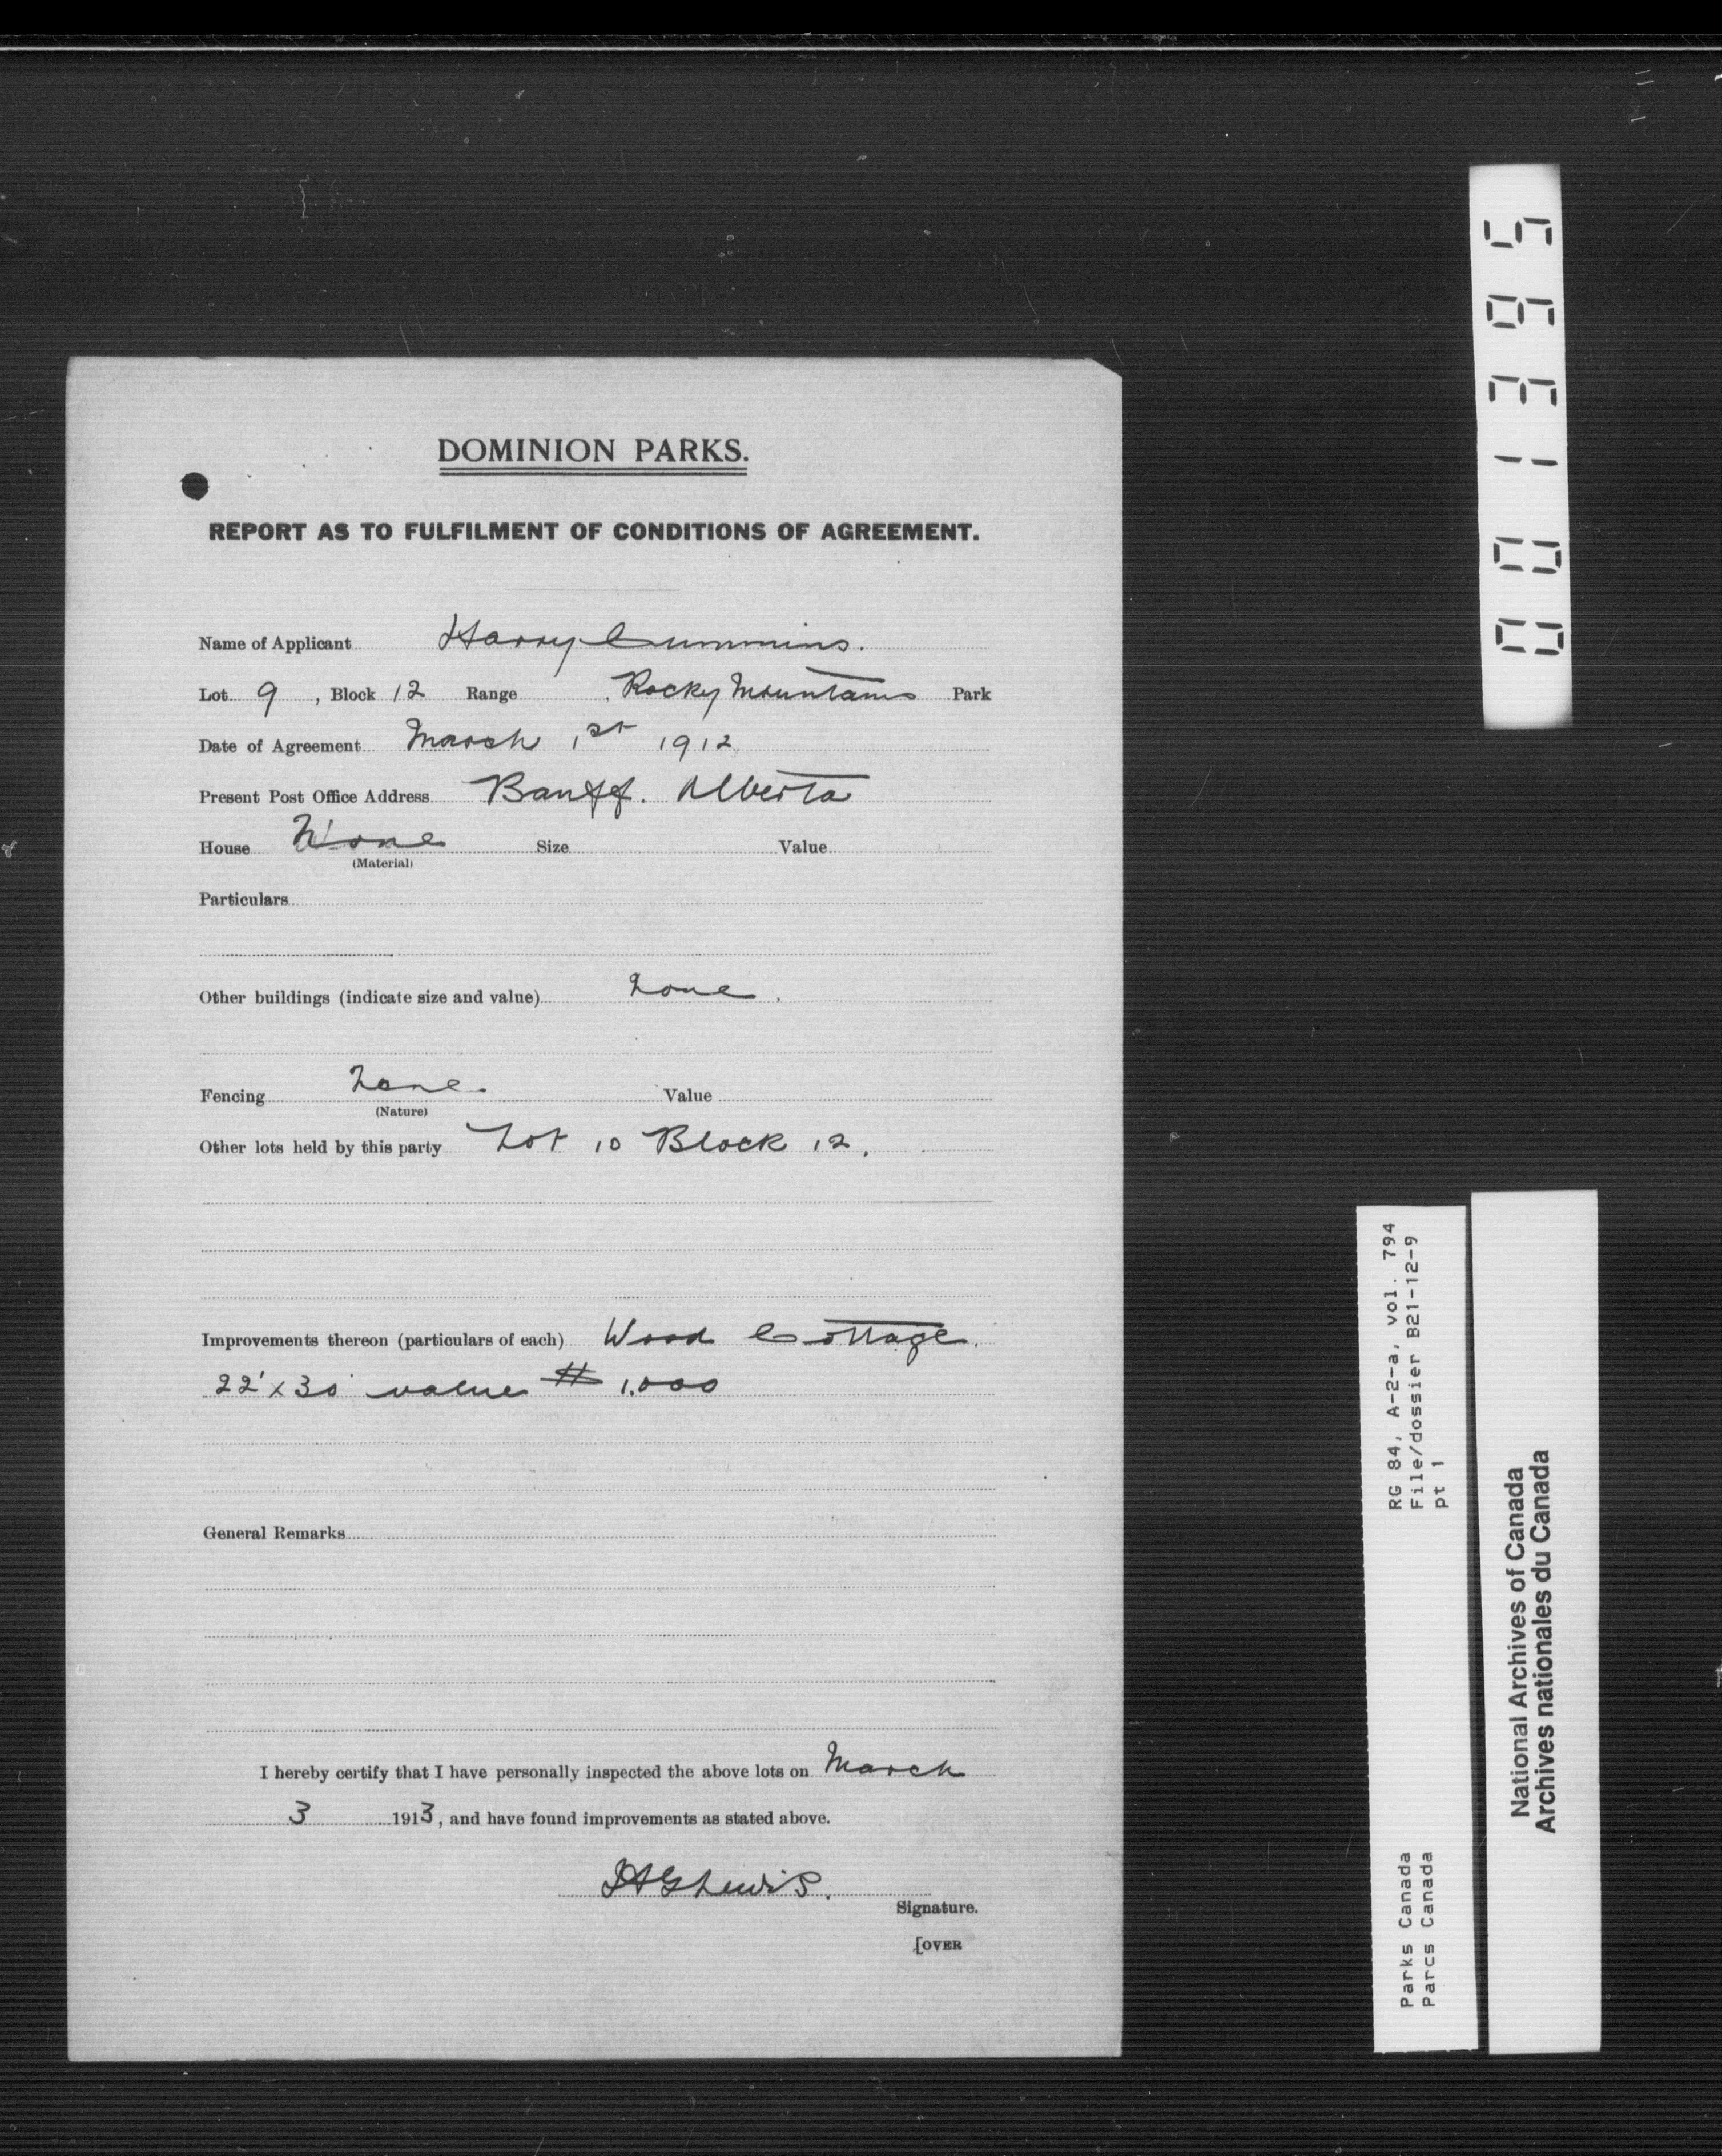 DOMINION PARKS.
REPORT AS TO FULFILMENT OF CONDITIONS OF AGREEMENT.
Name of Applicant Harry Cummins.
Lot 9, Block 12 Range , Rocky Mountains Park
Date of Agreement March 1st 1912
Present Post Office Address Banff. Alberta
House None Size Value
(Material)
Particulars
Other buildings (indicate size and value) None.
Fencing None. Value
(Nature)
Other lots held by this party Lot 10 Block 12.
Improvements thereon (particulars of each) Wood Cottage.
22' x 30' value $ 1.000
General Remarks
I hereby certify that I have personally inspected the above lots on March
3 1913, and have found improvements as stated above.
Lewis.
Signature.
[OVER
001395
RG 84, A-2-a, vol. 794
File/dossier B21-12-9
pt 1
Parks Canada
Parcs Canada
National Archives of Canada
Archives nationales du Canada